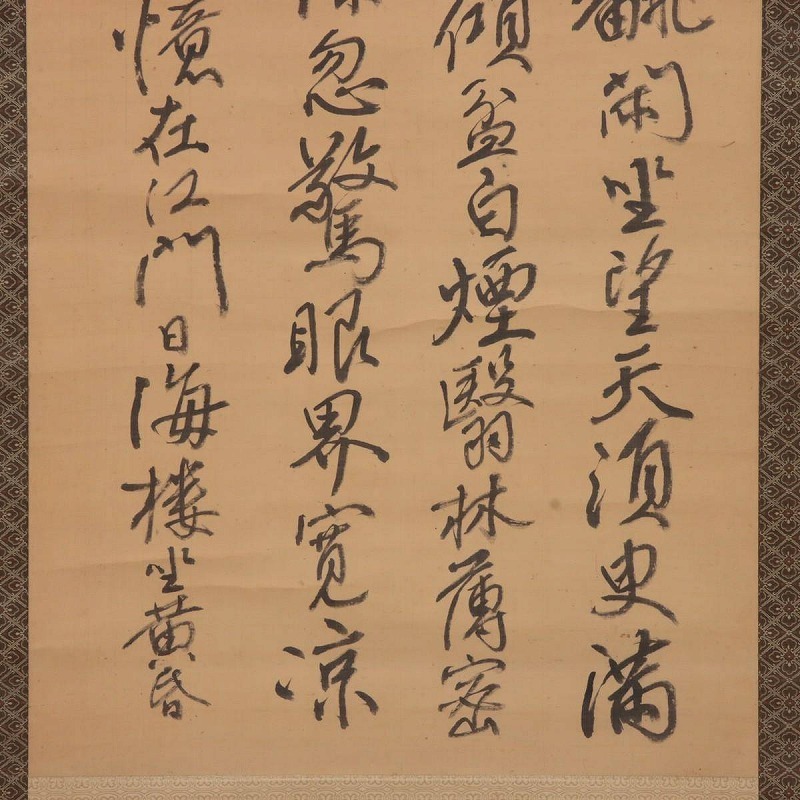 閑坐望天須臾満
傾盆白煙翳林薄密
忽驚眼界寛凉
憶在江門日海楼坐黄昏